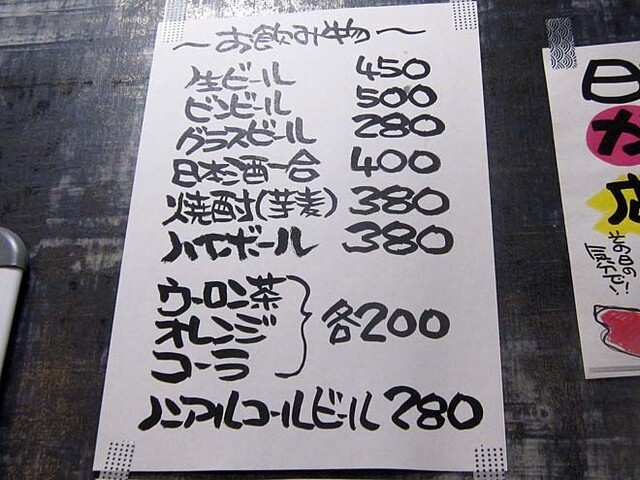 〜お飲み物〜
生ビール 450
ビンビール 500
グラスビール 280
日本酒一合 400
焼酎(芋麦) 380
ハイボール 380
ウーロン茶
オレンジ
コーラ
各200
ノンアルコールビール 280
日
カ
店
その日の